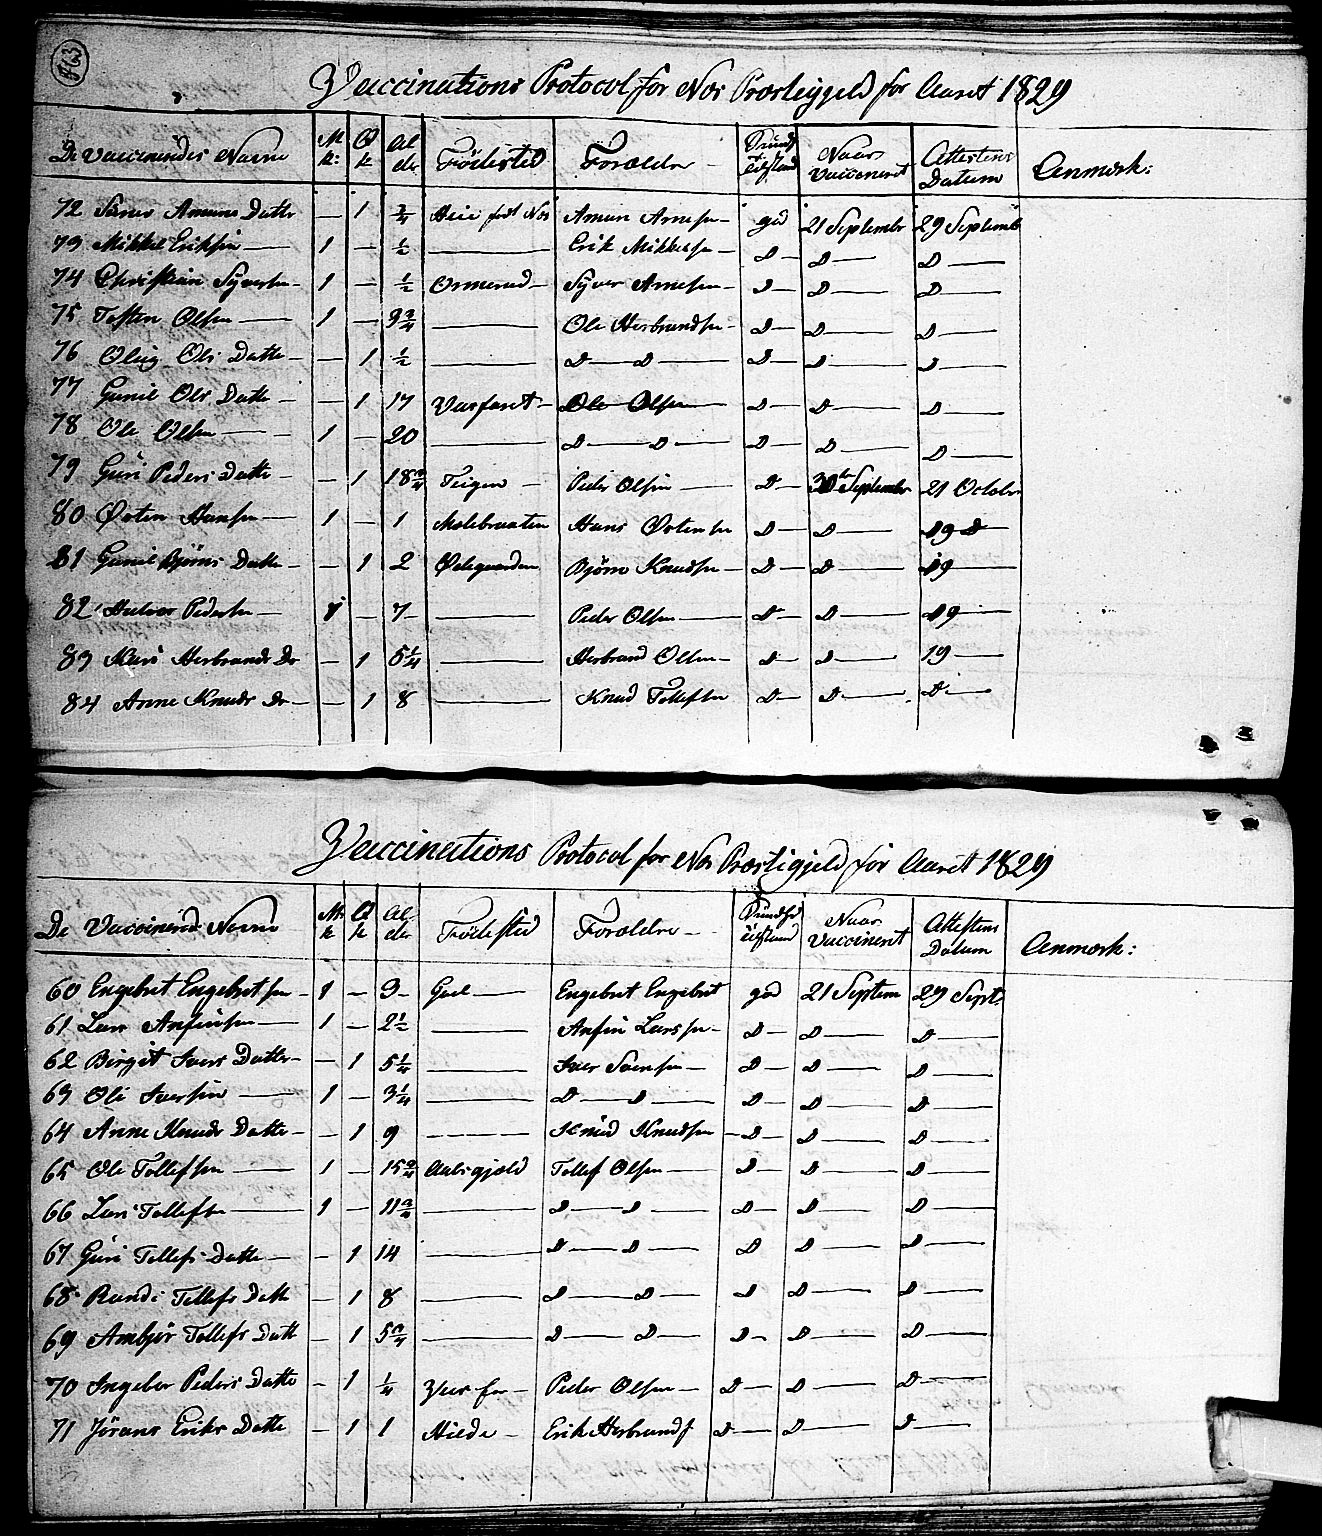 Vaccinations Protocol for Nes Præstegjeld for Aaret 1829
De Vaccineredes Navne M k: Q k Al der Fødested Forældre Sundh Tilstand Naar Vaccineret Attestens Datum Anmærk:
72 Amuns Datter — 1 3/4 født Nes Amun Arnesen god 21 Septembr 29 Septemb
73 Mikkel Eriksen — 1 — 1/2 — Erik Mikkelsen D — D — D —
74 Christian Syversen 1 — 1/2 Ormerud — Syver Arnesen D — D — D —
75 Tosten Olsen — 1 — 9 3/4 — Ole Herbrandsen D — D — D —
76 Oleig Ols Datter — 1 1/2 — D — D — D — D — D —
77 Gunil Ols Datte — 1 17 Vasfaret — Ole Olsen D — D — D —
78 Ole Olsen — 1 — 20 — D — D — D — D — D —
79 Guri Peders Datte — 1 18 3/4 Teigen — Peder Olsen — D — 30te Septembr 21 Octobr
80 Østen Hansen 1 — 1 Molebraaten Hans Østensen D — D — 19 D
81 Gunil Bjørns Datte — 1 2 Ødegaarden Bjørn Knudsen D — D — 19 —
82 Halvor Pedersen 1 — 7 — Peder Olsen — D — D — 19 —
83 Kari Herbrands Dr — 1 5 1/4 — Herbrand Olsen D — D — 19 —
84 Anne Knuds Dr — 1 8 — Knud Tollefsen D — D — D —
Vaccinations Protocol for Nes Præstegjeld for Aaret 1829
De Vaccinered Navne M k Q k Al der Fødested Forældre — Sundhed Tilstand Naar Vaccineret Attestens Datum Anmærk:
60 Engebret Engebretsen 1 — 3 — Gael — Engebret Engebret god 21 Septem 29 Sept.
61 Lars Anfinsen — 1 — 2 1/2 — Anfin Larssen — D — D — D —
62 Birgit Ivers Datter — 1 5 1/4 — Iver D — D — D —
63 Ole Iversen — 1 — 3 1/4 — D — D — D — D — D —
64 Anne Knuds Datte — 1 9 — Knud Knudsen — D — D — D —
65 Ole Tollefsen — 1 — 15 3/4 Aalsgjæld Tollef Olsen — D — D — D —
66 Lars Tollefsen — 1 — 11 3/4 — D — D — D — D — D —
67 Guri Tollefs Datte — 1 14 — D — D — D — D — D —
68 Randi Tollefs Datt — 1 8 — D — D — D — D — D —
69 Ambjør Tollefs Datt — 1 5 3/4 — D — D — D — D — D —
70 Ingebor Peders Datte — 1 1/4 Peder Olsen — D — D — D —
71 Jørans Eriks Datte — 1 1 Hilde — Erik Herbrands D — D — D —